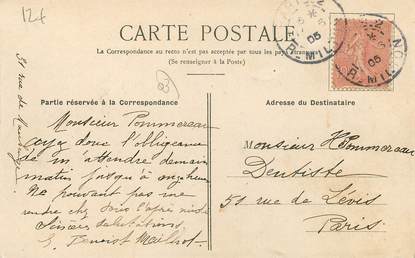 12f
CARTE POSTALE
La Correspondance au recto n'est pas acceptée par tous les pays étrangers
(Se renseigner à la Poste)
Partie réservée à la Correspondance
Adresse du Destinataire
Monsieur Pommereau
ayez donc l'obligeance
de m'attendre demain
matin jusqu'à onze heures
Ne pouvant pas me
rendre chez vous l'après midi
Sincères salutations
Benoist
51 rue de
Monsieur Pommereau
Dentiste
51 rue de Lévis
Paris
05
05